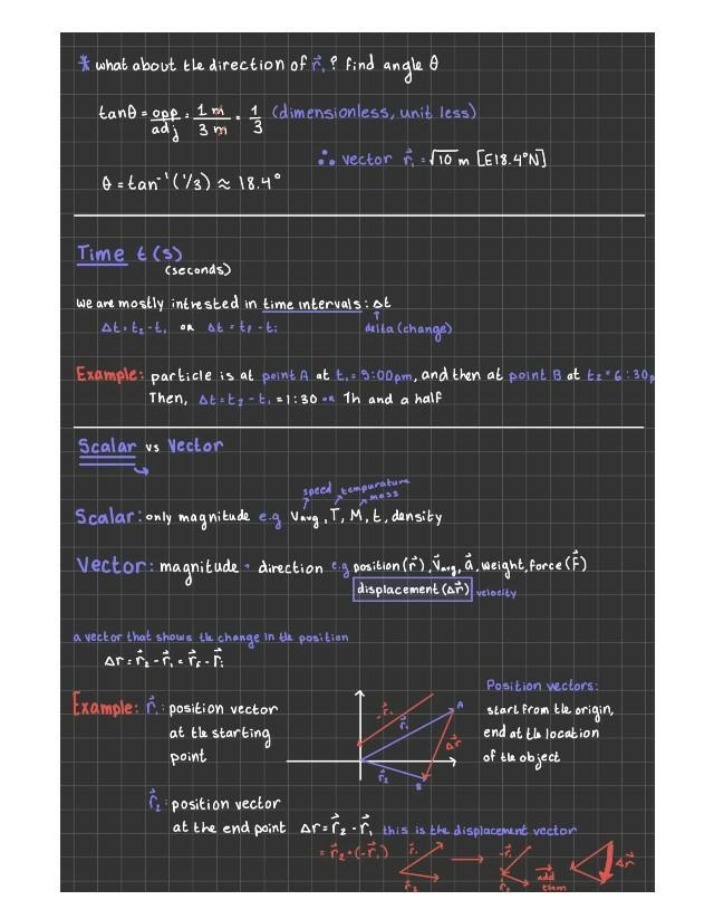 * what about the direction of r⃗₁? find angle θ
tanθ = opp/adj = 1 m/3 m = 1/3 (dimensionless, unit less)
∴ vector r⃗₁ = √10 m [E18.4°N]
θ = tan⁻¹(1/3) ≈ 18.4°
Time t (s)
(seconds)
we are mostly intrested in time intervals: Δt
Δt = t₂ - t₁ or Δt = tf - ti
delta (change)
Example: particle is at point A at t₁ = 5:00pm, and then at point B at t₂ = 6:30p
Then, Δt = t₂ - t₁ = 1:30 or 1h and a half
Scalar vs Vector
speed tempurature
mass
Scalar: only magnitude e.g Vavg, T, M, t, density
Vector: magnitude + direction e.g position (r⃗), V⃗avg, a⃗, weight, force (F⃗)
displacement (Δr⃗) velocity
a vector that shows the change in the position
Δr = r⃗₂ - r⃗₁ = r⃗f - r⃗i
Example: r⃗₁: position vector
at the starting
point
-r⃗₁
r⃗₁
A
Δr⃗
r⃗₂
B
Position vectors:
start from the origin,
end at the location
of the object
r⃗₂: position vector
at the end point Δr = r⃗₂ - r⃗₁ this is the displacement vector
= r⃗₂ + (-r⃗₁) r⃗₁ -r⃗₁ Δr⃗
r⃗₂ r⃗₂ add
them